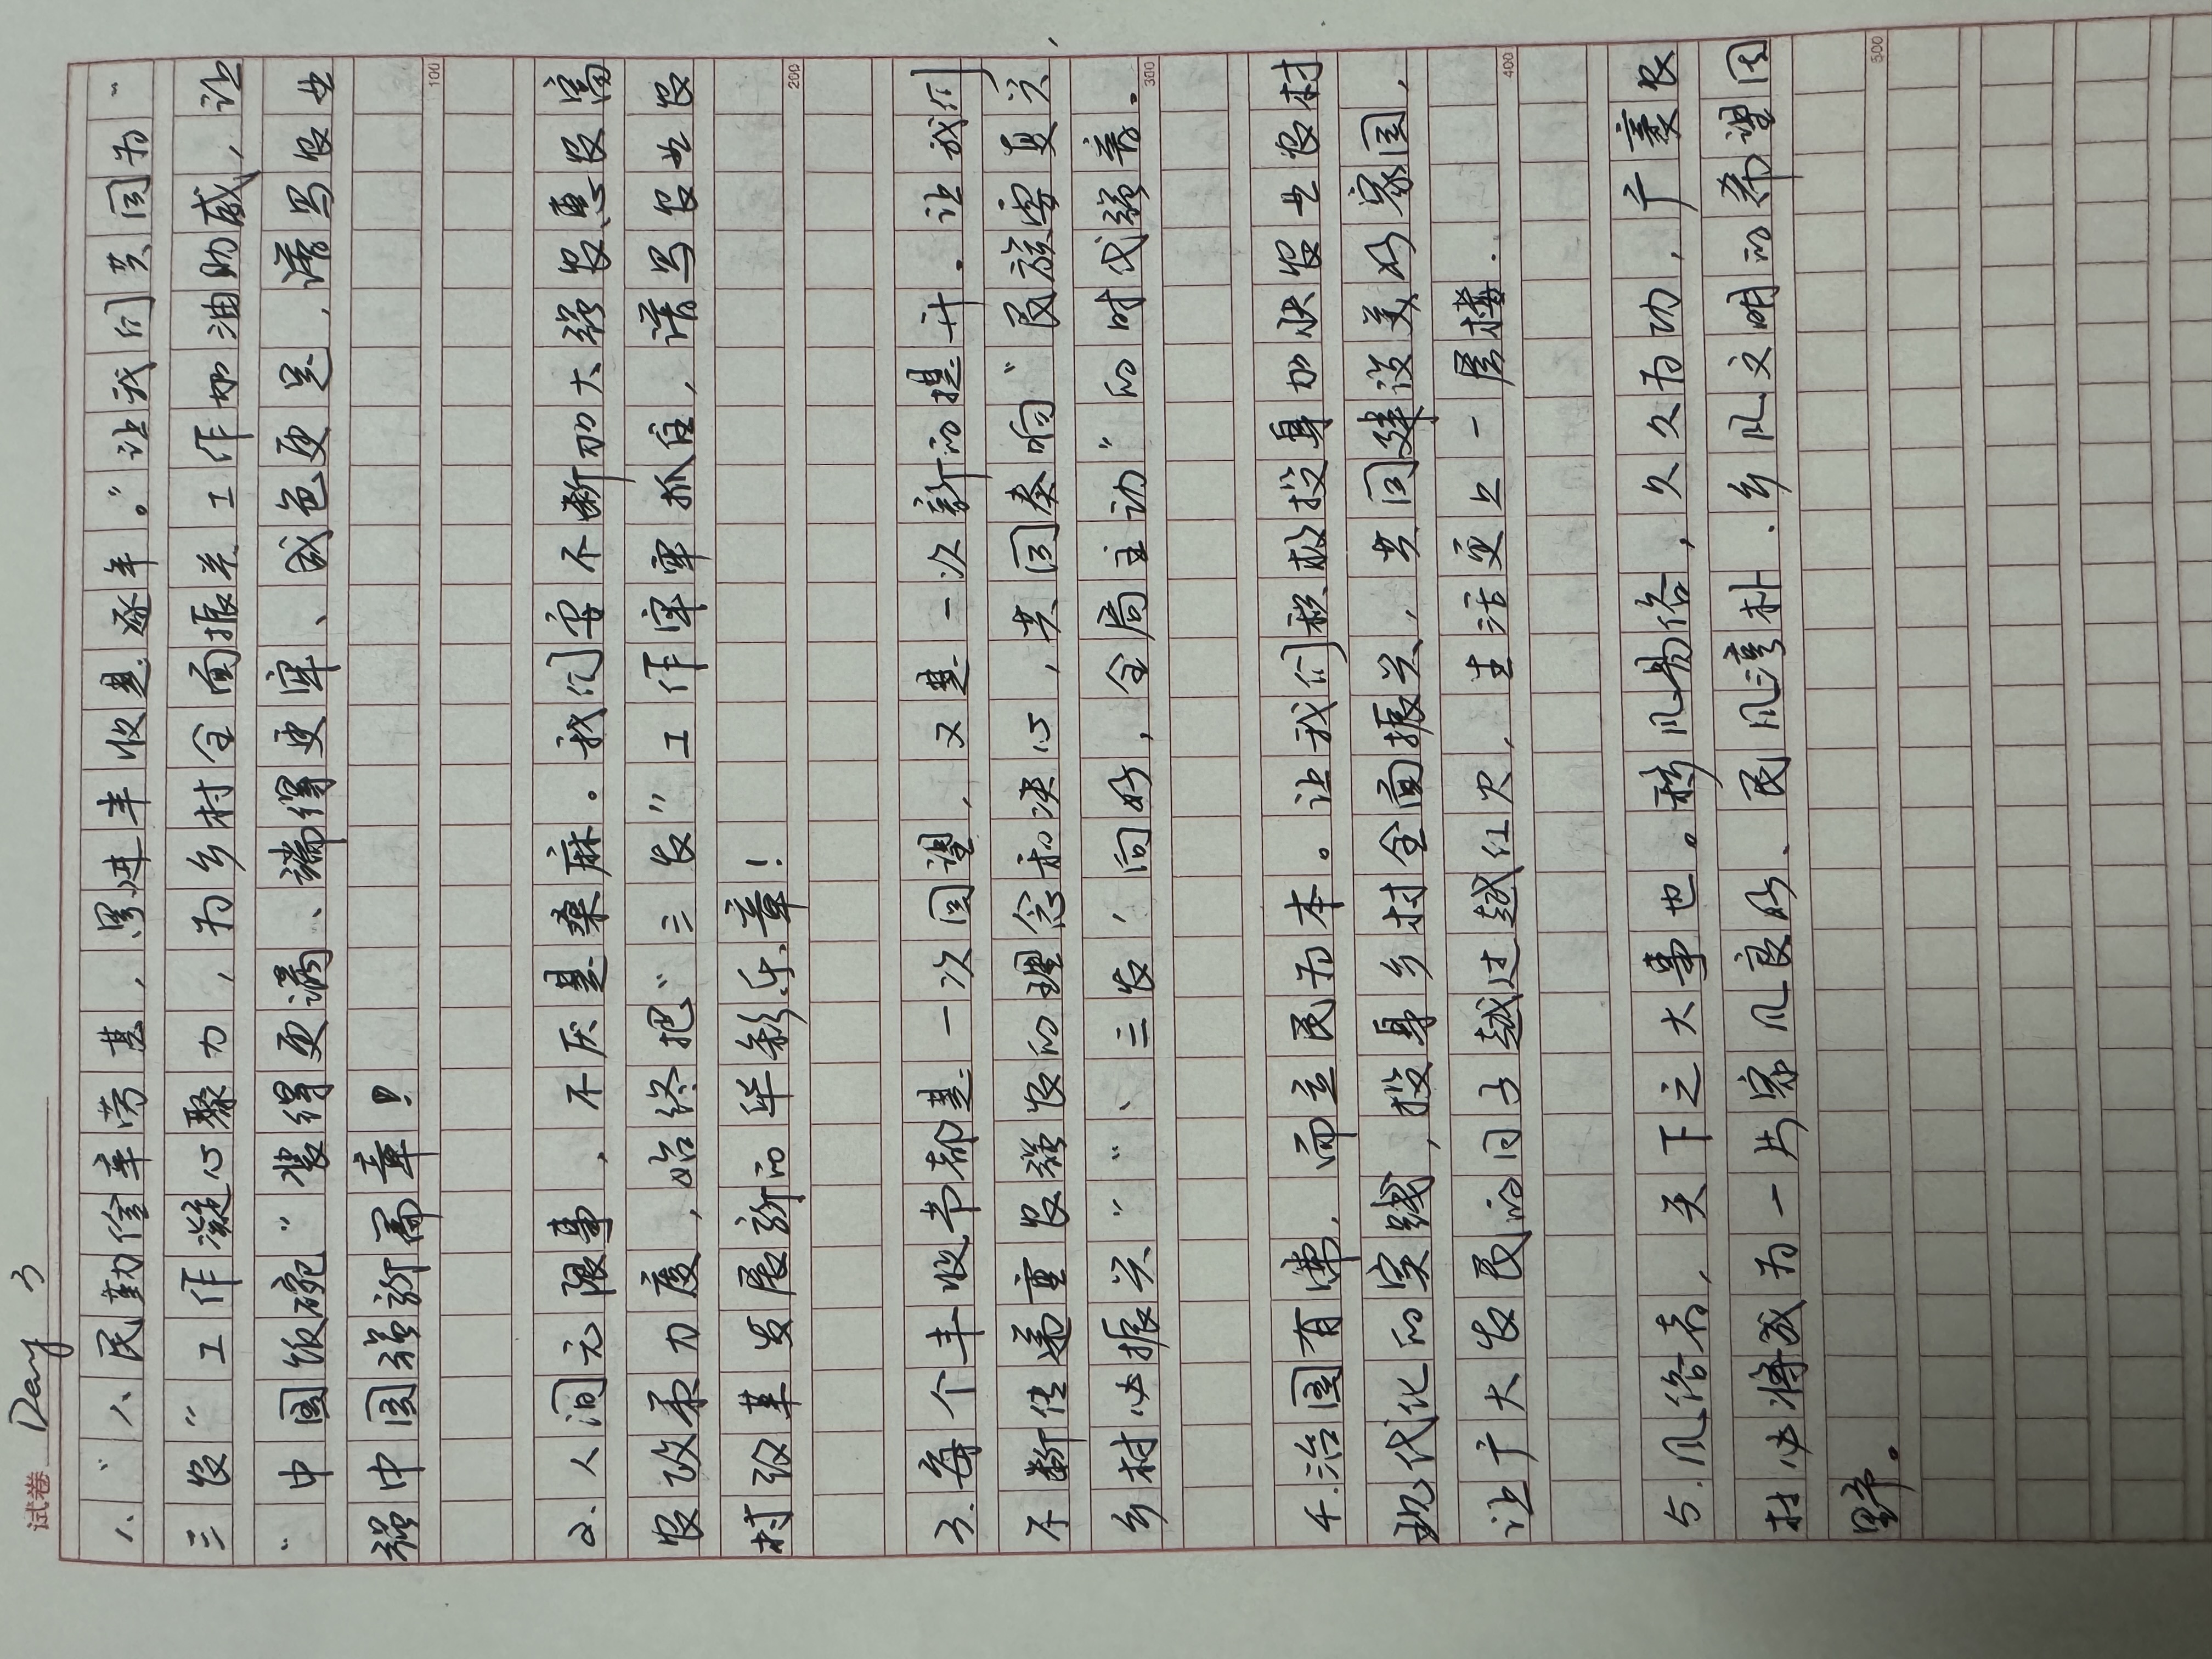 试卷 Day 3
1、“人民勤俭辛劳甚，累进丰收是逐年。”让我们共同为“
三农”工作凝心聚力，为乡村全面振兴工作加油助威，让
“中国饭碗”装得更满、端得更牢、成色更足，谱写农业
强中国强新篇章！
100
2.人间无限事，不厌是桑麻。我们要不断加大强农惠农富
农政策力度，始终把“三农”工作牢牢抓住，谱写农业农
村改革发展新的华彩乐章！
200
3.每个丰收节都是一次回望，又是一次新的提升。让我们
不断传递重农强农的理念和决心，共同奏响“民族要复兴，
乡村必振兴”“‘三农’向好，全局主动”的时代强音。
300
4.治国有常，而立民为本。让我们积极投身加快农业农村
现代化的实践，投身乡村全面振兴，共同建设美好家园，
让广大农民的日子越过越红火，生活更上一层楼.
400
5.风俗者，天下之大事也。移风易俗，久久为功，广袤农
村必将成为一片家风良好、民风淳朴、乡风文明的希望田
野。
500